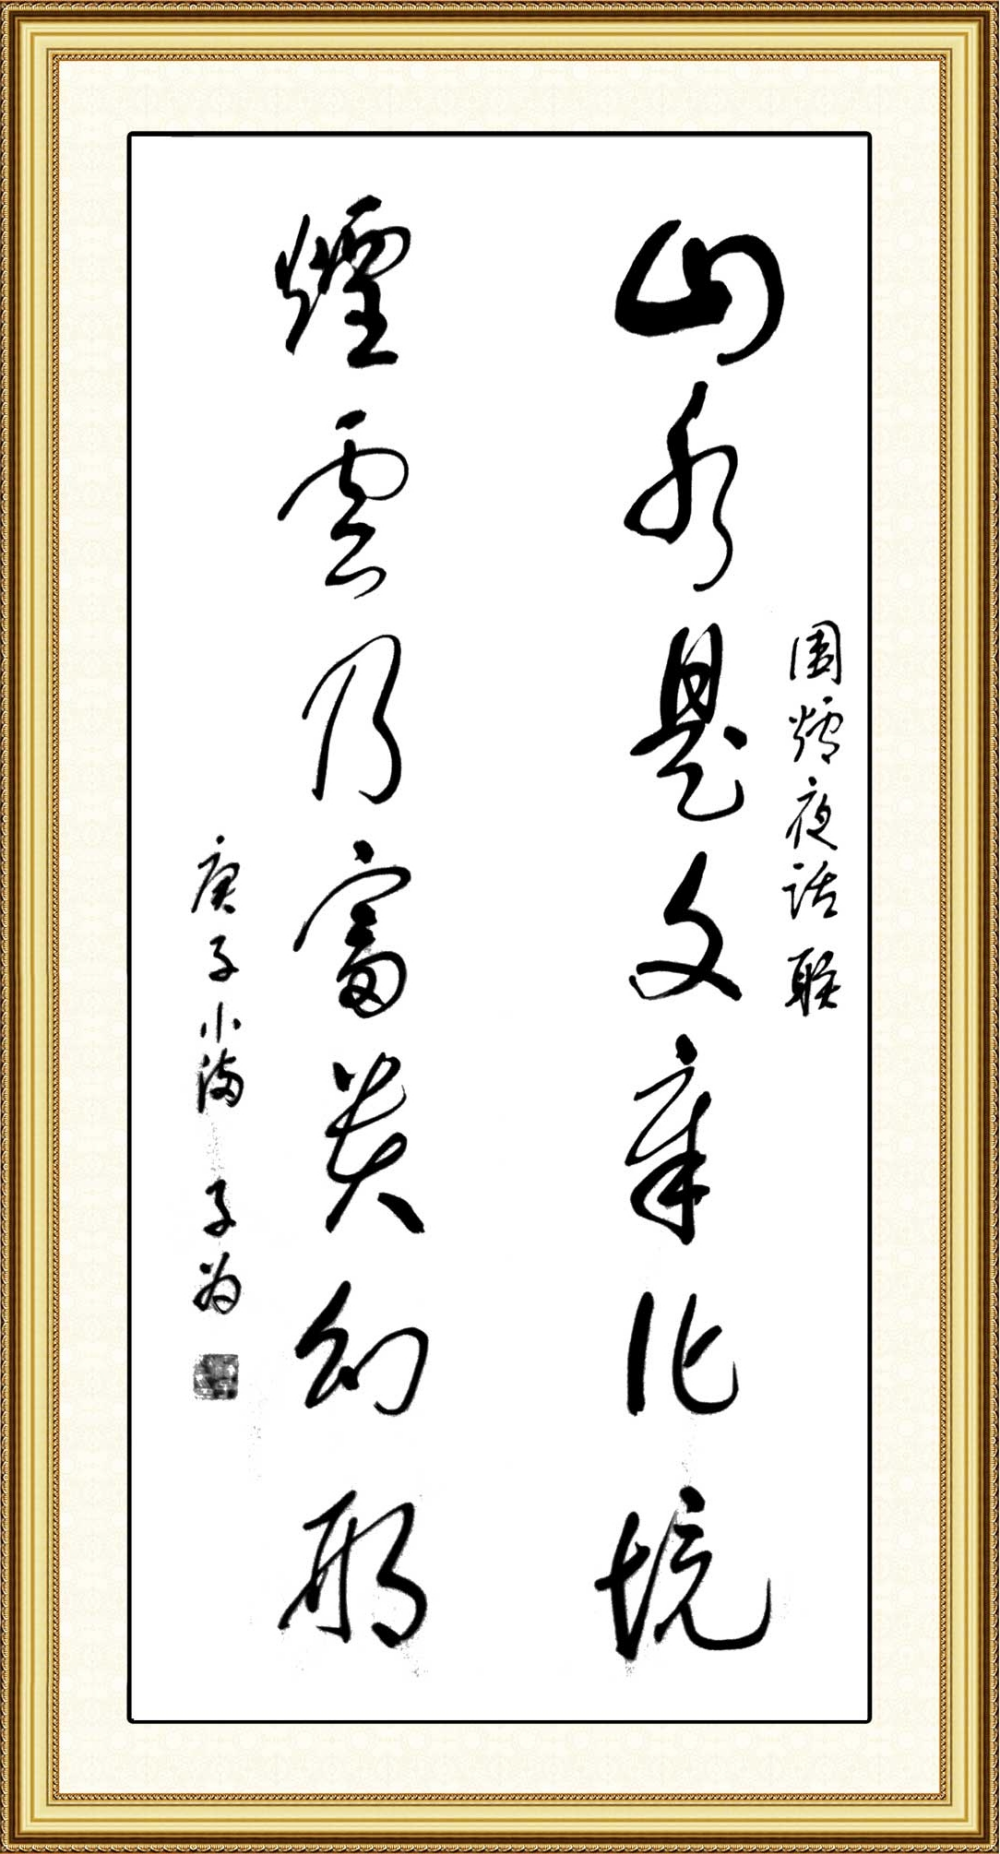 围炉夜话联
山水是文章化境
煙雲乃富贵幻形
庚子小满 子为